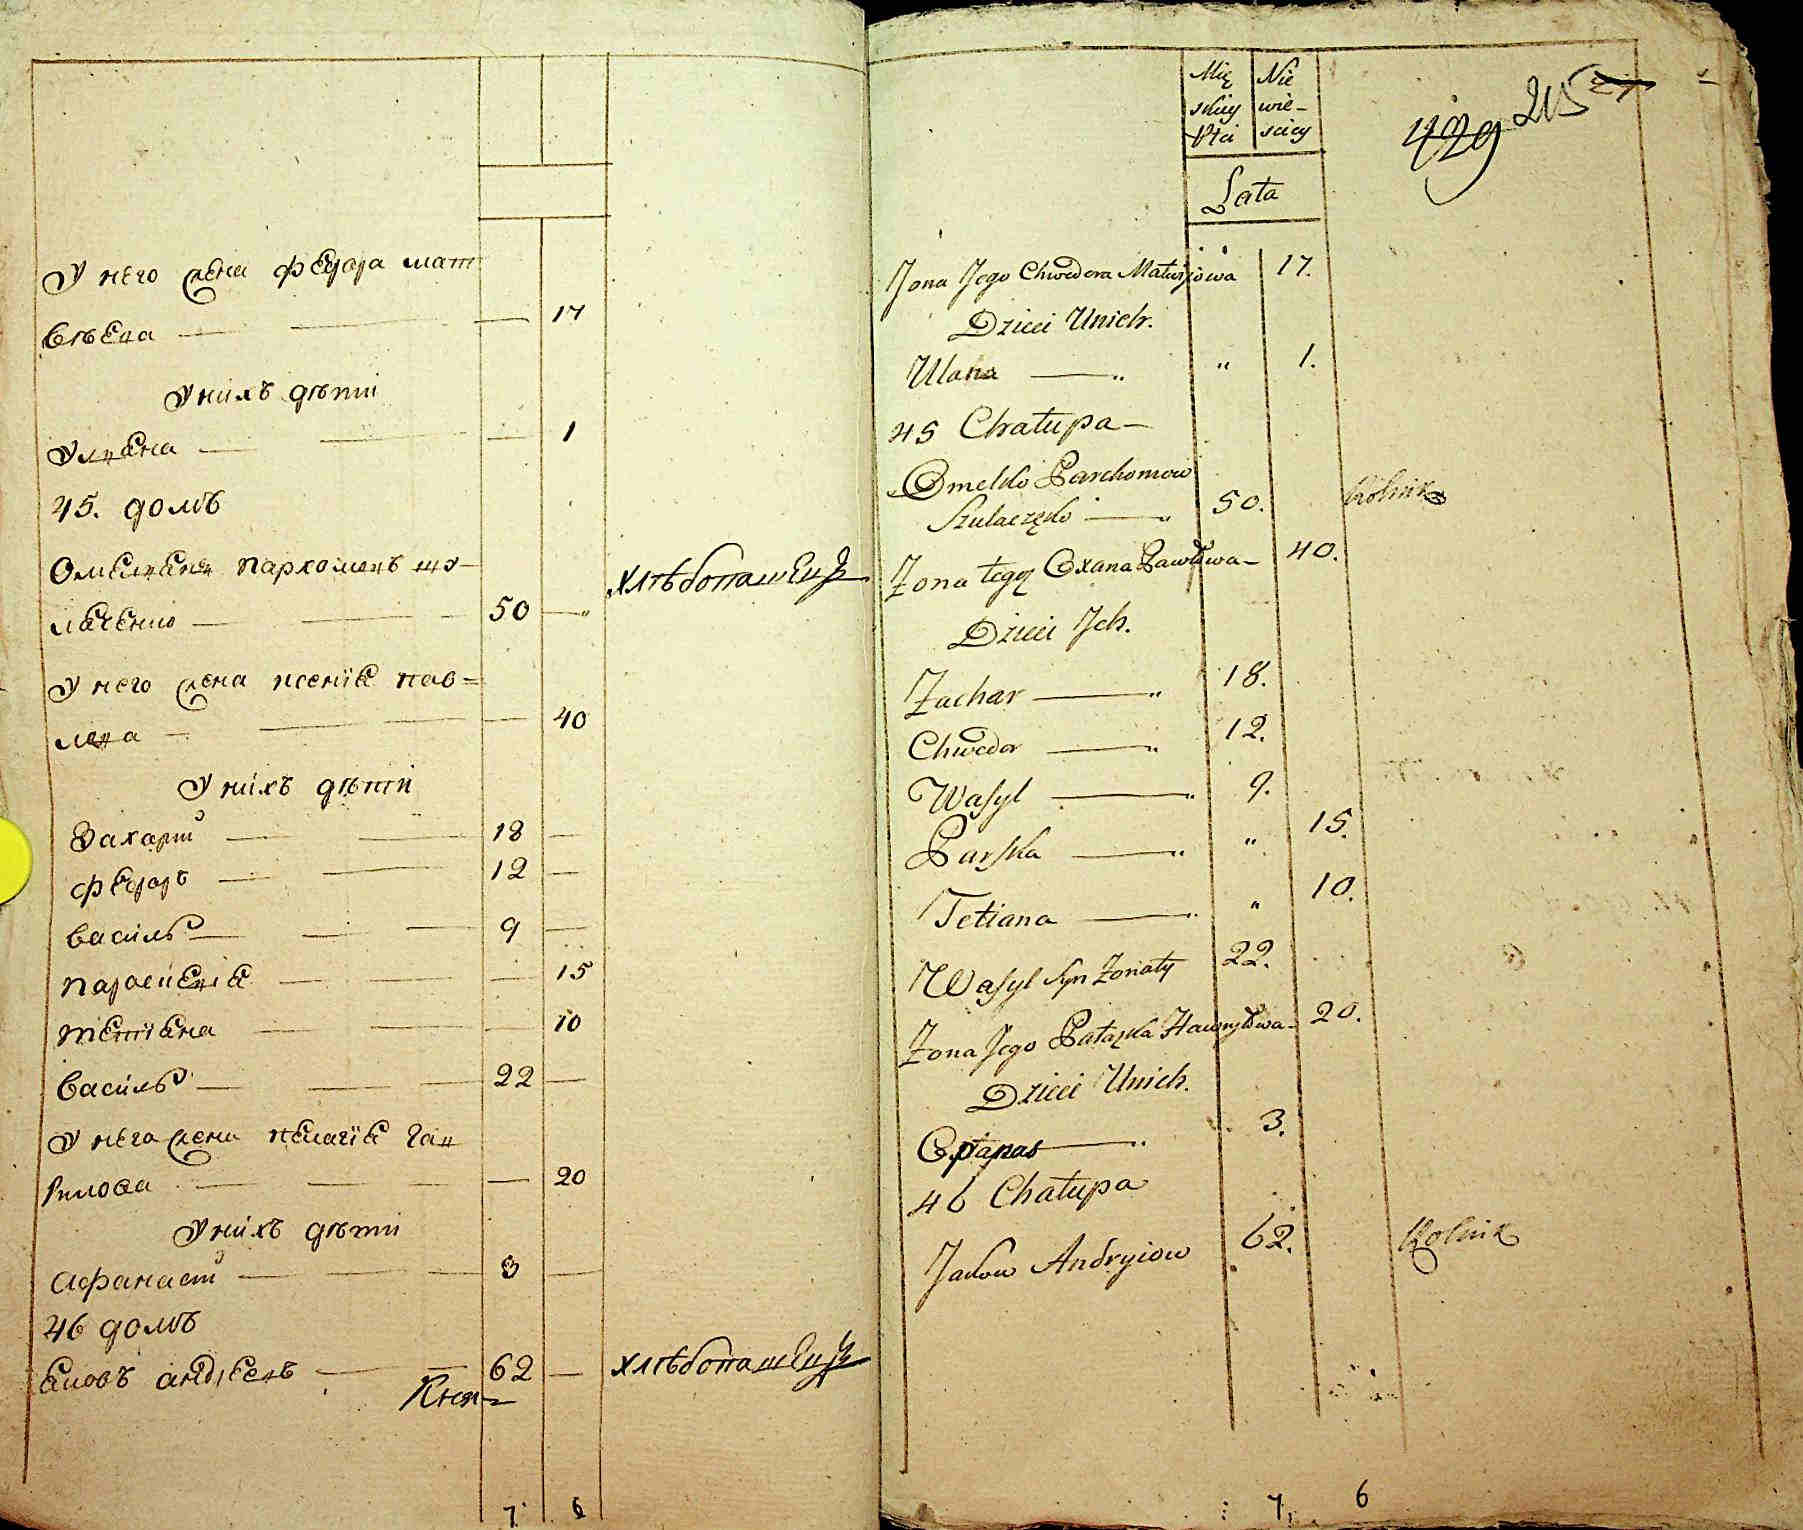 У него жена федора мат
вѣева — 17
У нихъ дѣти
Улиана — 1
45. домъ
Омелиянъ пархомовъ шу-
лаченко — 50 — хлѣбопашецъ
У него жена ксенія пав=
лова — 40
У нихъ дѣти
Захарій — 18 —
федоръ — 12 —
василь — 9 —
параскевія — 15
тетіана — 10
василь — 22 —
У него жена пелагія гав
рилова — 20
У нихъ дѣти
афанасій — 3 —
46 домъ
яковъ андреевъ — 62 — хлѣбопашецъ
7 6
Mię Nie
skiey wie-
Płci sciey
Lata
429 215
Zona Jego Chwedora Matwijowa 17.
Dzieci Unich.
Ulana — " " 1.
45 Chałupa —
Omelko Parchomow
Szulaczęko — " 50. Rolnik
Zona tegoż Oxana Pawłowa — 40.
Dzieci Jch.
Zachar — " 18.
Chwedor — " 12.
Wasyl — " 9.
Parska — " " 15.
Tetiana — " " 10.
Wasyl Syn Zonaty 22.
Zona Jego Pałażka Hawryłowa — 20.
Dzieci Unich.
Opanas — " 3.
46 Chałupa
Jakow Andryiow 62. Rolnik
7. 6